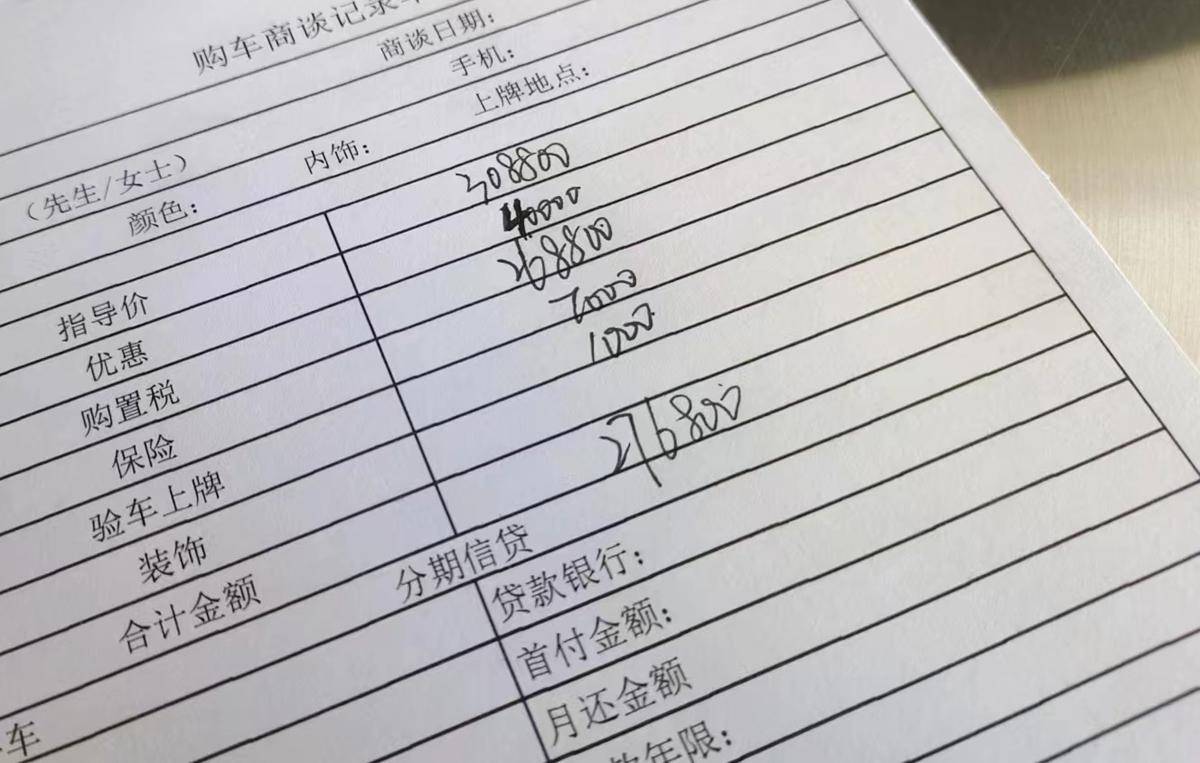 购车商谈记录
商谈日期：
（先生/女士） 手机：
颜色： 内饰： 上牌地点：
指导价 308800
优惠 40000
购置税 268800
保险 7000
验车上牌 1000
装饰
合计金额 276800
分期信贷
车 贷款银行：
首付金额：
月还金额
年限：